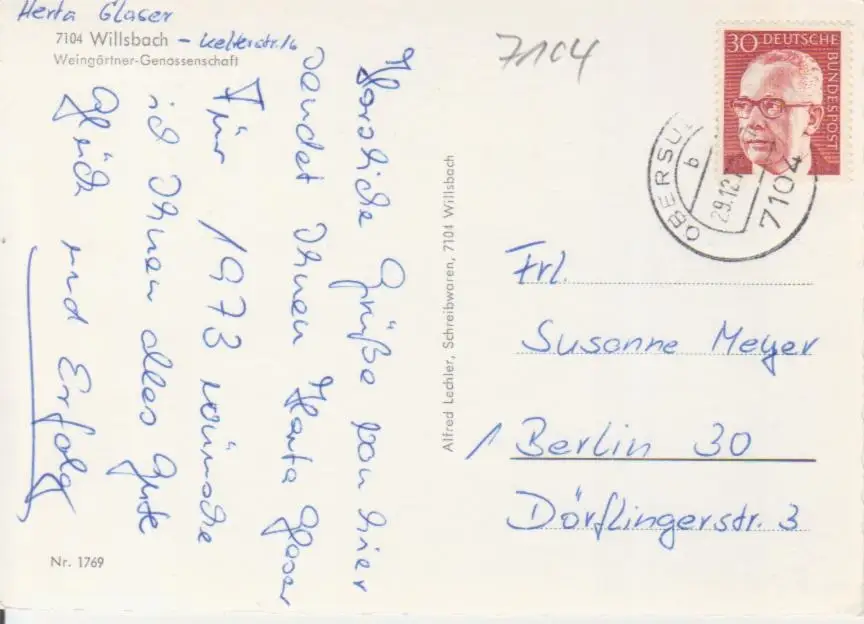 Herta Glaser
7104 Willsbach - Kelterstr. 16
Weingärtner-Genossenschaft
Herzliche Grüße von hier
sendet Ihnen Herta Glaser
Für 1973 wünsche
ich Ihnen alles Gute
Glück und Erfolg
Nr. 1769
Alfred Lechler, Schreibwaren, 7104 Willsbach
7104
30 DEUTSCHE BUNDESPOST
7104 OBERSU
b
29.12.
Frl.
Susanne Meyer
1 Berlin 30
Dörflingerstr. 3